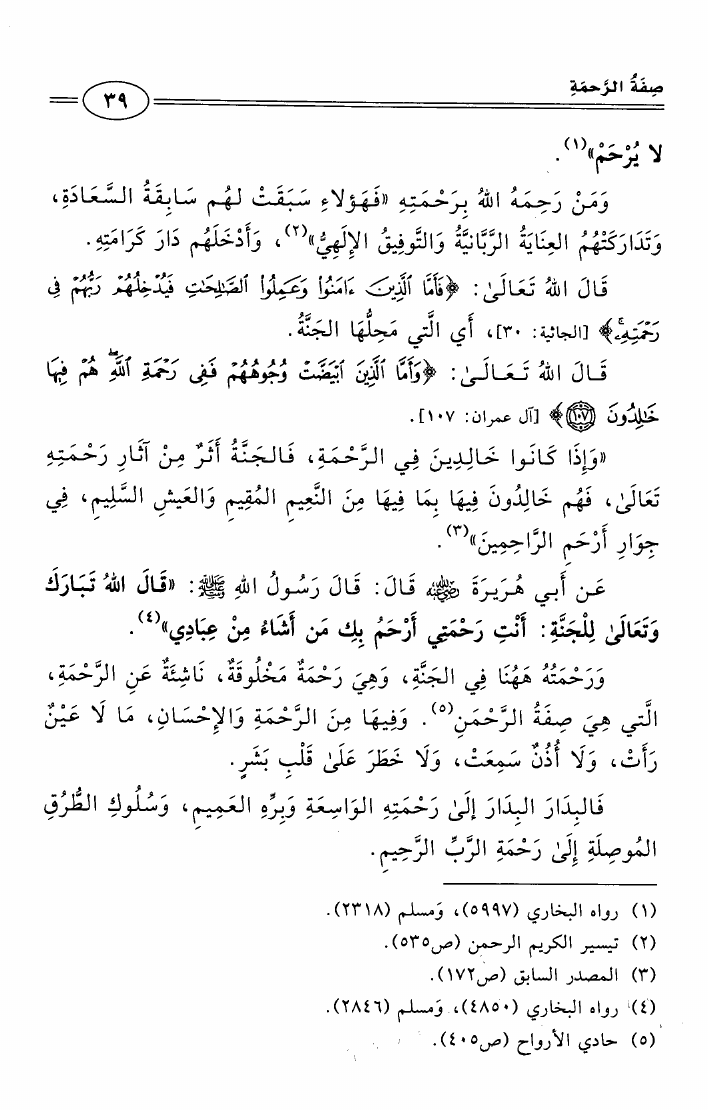 صِفَةُ الرَّحمَةِ
٣٩
لا يُرْحَمْ»(١).
وَمَنْ رَحِمَهُ اللهُ بِرَحْمَتِهِ «فَهَؤلاءِ سَبَقَتْ لهُم سَابِقَةُ السَّعَادَةِ،
وَتَدَارَكَتْهُمُ العِنَايَةُ الرَّبَّانيَّةُ وَالتَّوفِيقُ الإِلَهِيُّ»(٢)، وَأَدْخَلَهُم دَارَ كَرَامَتِهِ.
قَالَ اللهُ تَعَالَىٰ: ﴿فَأَمَّا ٱلَّذِينَ ءَامَنُوا۟ وَعَمِلُوا۟ ٱلصَّٰلِحَٰتِ فَيُدْخِلُهُمْ رَبُّهُمْ فِى
رَحْمَتِهِۦۚ﴾ [الجاثية: ٣٠]، أَي الَّتي مَحِلُّهَا الجَنَّةُ.
قَـالَ اللهُ تَـعَـالَـىٰ: ﴿وَأَمَّا ٱلَّذِينَ ٱبْيَضَّتْ وُجُوهُهُمْ فَفِى رَحْمَةِ ٱللَّهِۖ هُمْ فِيهَا
خَٰلِدُونَ ﴿١٠٧﴾﴾ [آل عمران: ١٠٧].
«وَإِذَا كَانُوا خَالِدِينَ فِي الرَّحْمَةِ، فَالجَنَّةُ أَثَرٌ مِنْ آثَارِ رَحْمَتِهِ
تَعَالَىٰ، فَهُم خَالِدُونَ فِيهَا بِمَا فِيهَا مِنَ النَّعِيمِ المُقِيمِ وَالعَيشِ السَّلِيمِ، فِي
جِوَارِ أَرْحَمِ الرَّاحِمِينَ»(٣).
عَن أَبي هُرَيرَةَ رضي الله عنه قَالَ: قَالَ رَسُولُ اللهِ ﷺ: «قَالَ اللهُ تَبَارَكَ
وَتَعَالَىٰ لِلْجَنَّةِ: أَنْتِ رَحْمَتِي أَرْحَمُ بِكِ مَن أَشَاءُ مِنْ عِبَادِي»(٤).
وَرَحْمَتُهُ هَهُنَا فِي الجَنَّةِ، وَهِيَ رَحْمَةٌ مَخْلُوقَةٌ، نَاشِئَةٌ عَنِ الرَّحْمَةِ،
الَّتي هِيَ صِفَةُ الرَّحْمَنِ(٥). وَفِيهَا مِنَ الرَّحْمَةِ وَالإِحْسَانِ، مَا لَا عَيْنٌ
رَأَتْ، وَلَا أُذُنٌ سَمِعَتْ، وَلَا خَطَرَ عَلَىٰ قَلْبِ بَشَرٍ.
فَالبِدَارَ البِدَارَ إِلَىٰ رَحْمَتِهِ الوَاسِعَةِ وَبِرِّهِ العَمِيمِ، وَسُلُوكِ الطُّرُقِ
المُوصِلَةِ إِلَىٰ رَحْمَةِ الرَّبِّ الرَّحِيمِ.
(١) رواه البخاري (٥٩٩٧)، وَمسلم (٢٣١٨).
(٢) تيسير الكريم الرحمن (ص٥٣٥).
(٣) المصدر السابق (ص١٧٢).
(٤) رواه البخاري (٤٨٥٠)، وَمسلم (٢٨٤٦).
(٥) حادي الأرواح (ص٤٠٥).